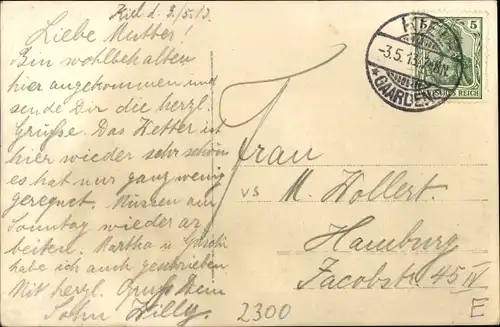 Kiel d. 3./5.13.
Liebe Mutter!
Bin wohlbehalten
hier angekommen und
sende Dir die herzl.
Grüße. Das Wetter ist
hier wieder sehr schön
es hat nur ganz wenig
geregnet. Müssen am
Sonntag wieder ar
beiten. Martha u.
habe ich auch geschrieben
Mit herzl. Gruß Dein
Sohn Willy.
KIEL
-3.5.13.
*GAARDEN
5
REICH
Frau
VS
M. Wollert.
Hamburg
Jacobstr. 45 IV
2300
E